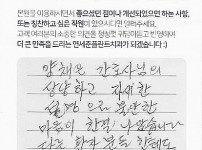 본원을 이용하시면서 좋으셨던 점이나 개선되었으면 하는 사항,
또는 칭찬하고 싶은 직원이 있으시다면 알려주세요.
고객 여러분의 소중한 의견을 정성껏 귀담아듣고 반영하여
더 큰 만족을 드리는 연세준플란트치과가 되겠습니다 :)
양채은 간호사님의
상냥하고 자세한
설명으로 불안한
마음이 한결 나았습니다
다른 환자분들